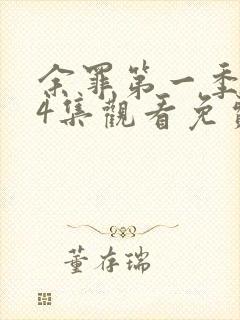 余罪第一季
4集觀看免費
董存瑞